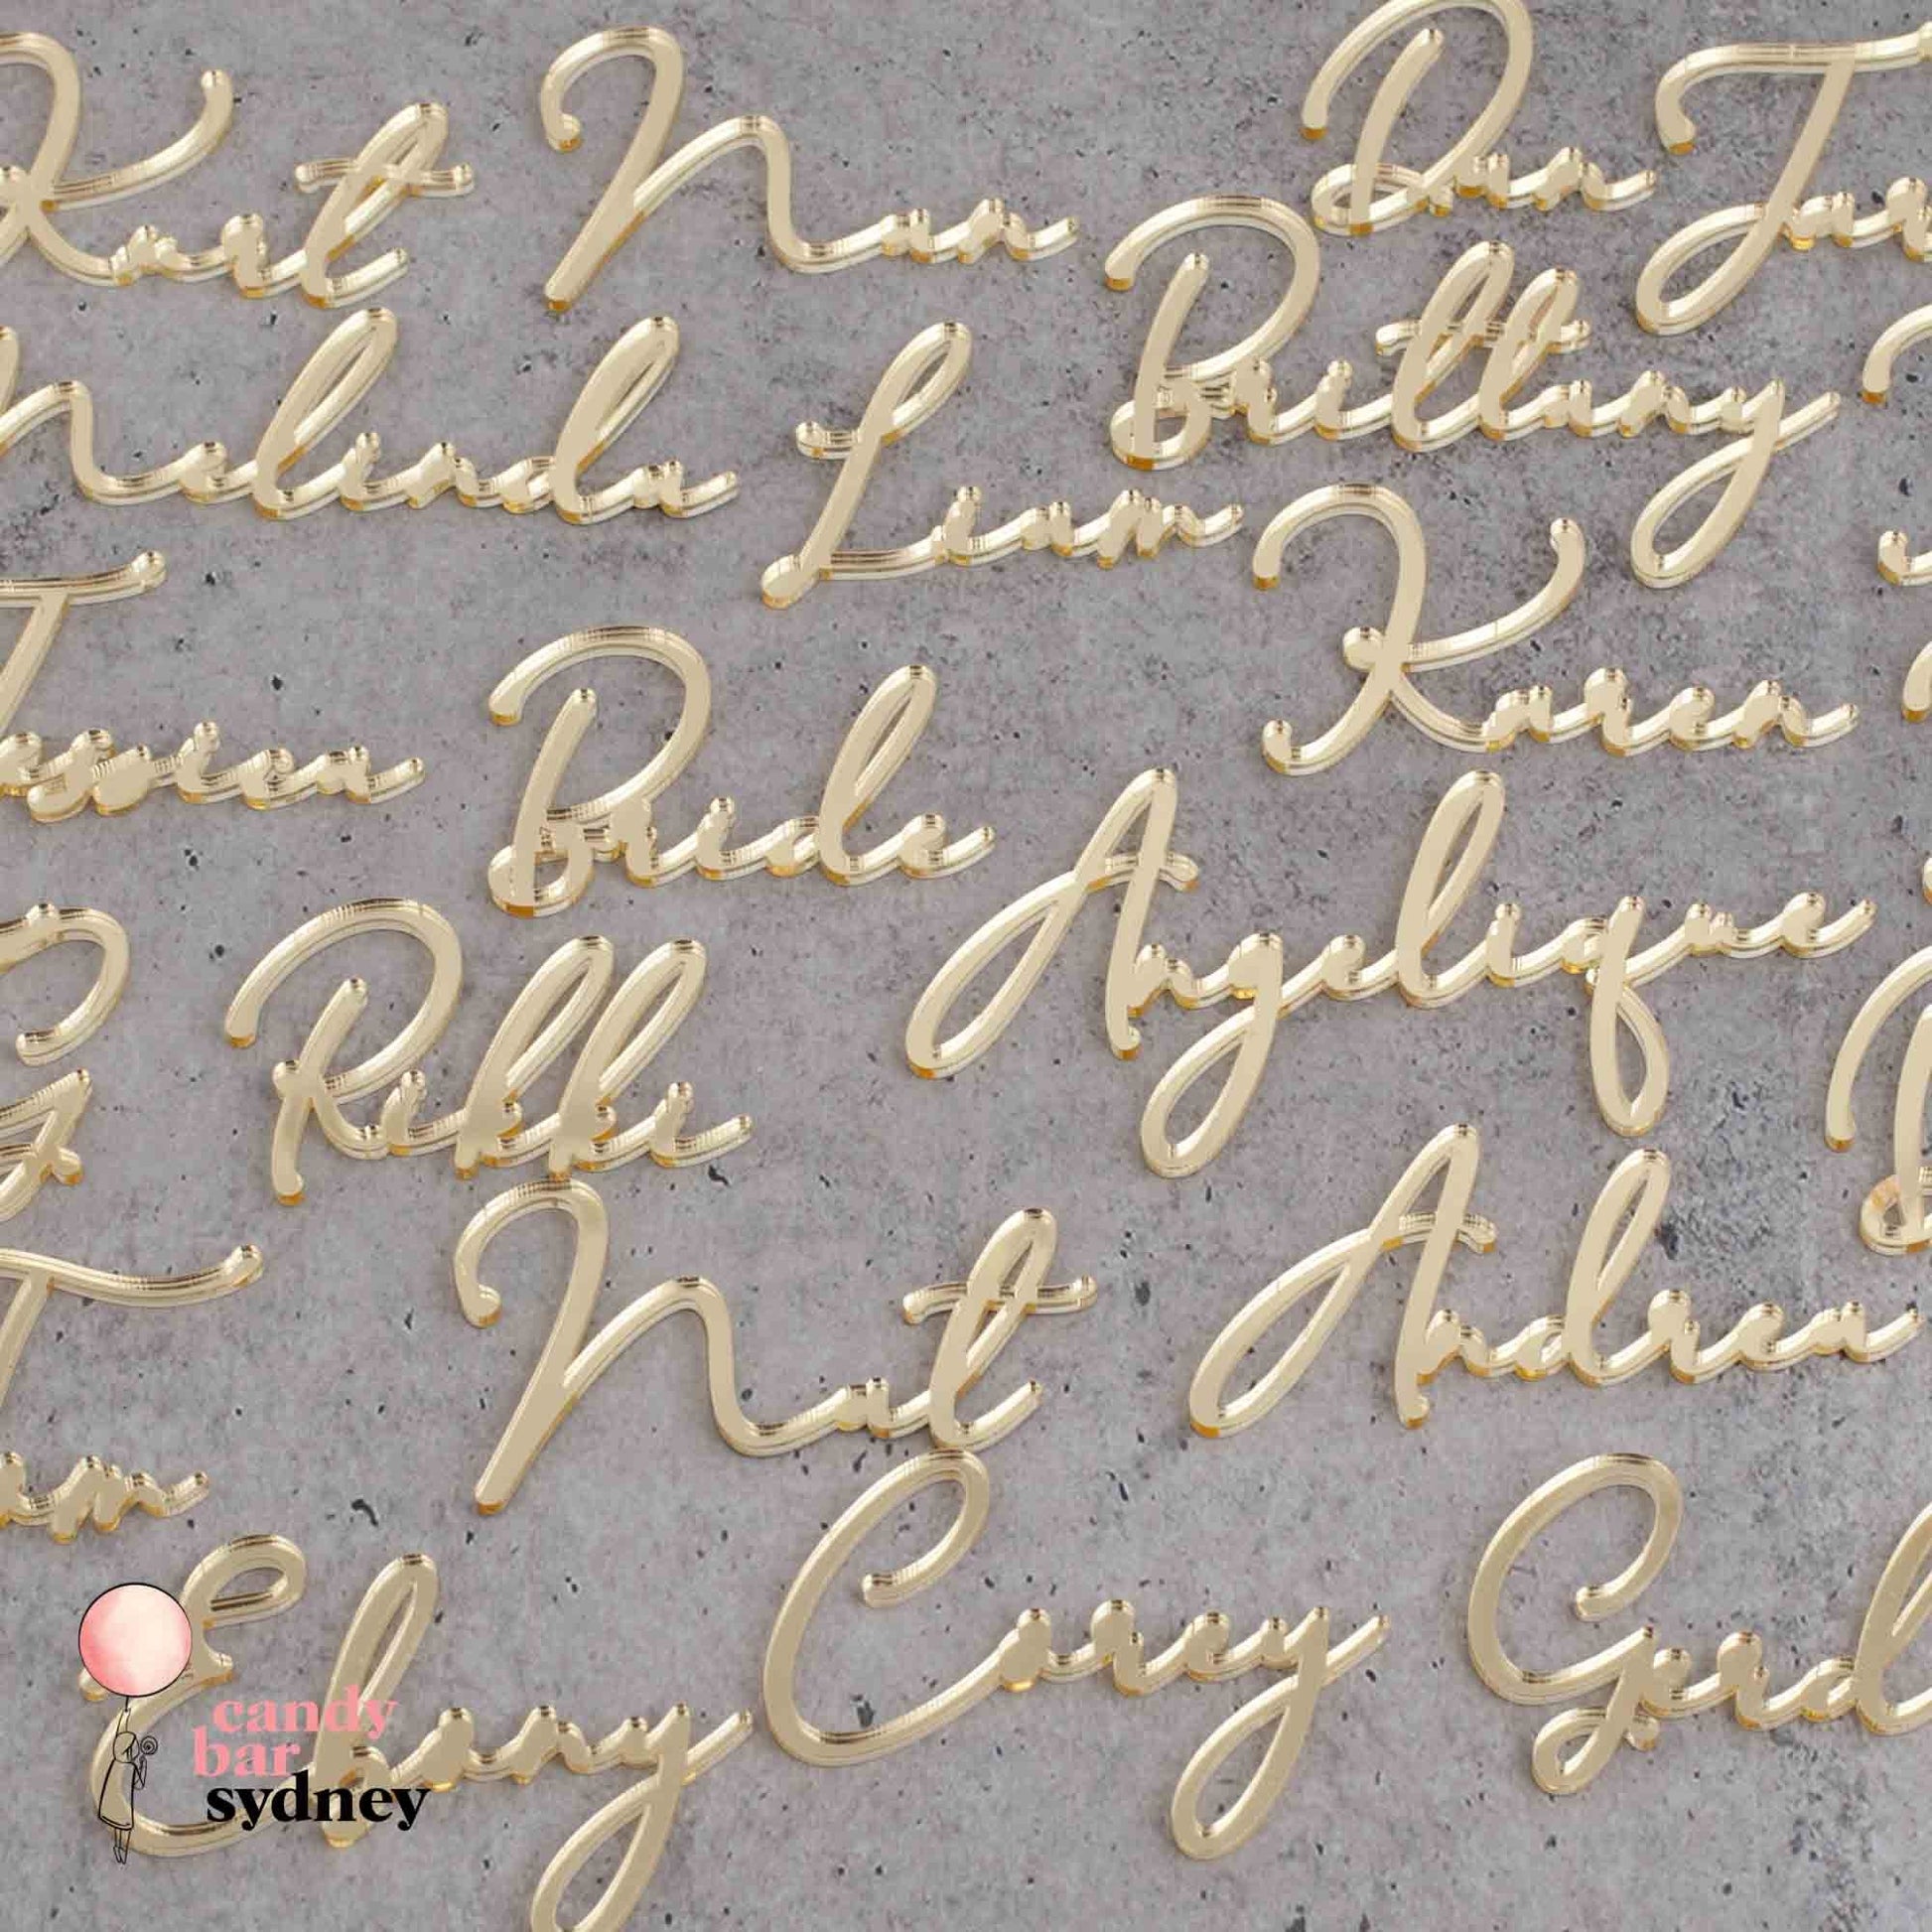 Kurt
Nan
Dan
Melinda
Liam
Brittany
Jessica
Bride
Karen
Rikki
Angelique
Nat
Andrea
Ebony
Corey
Gerd
candy
bar
sydney